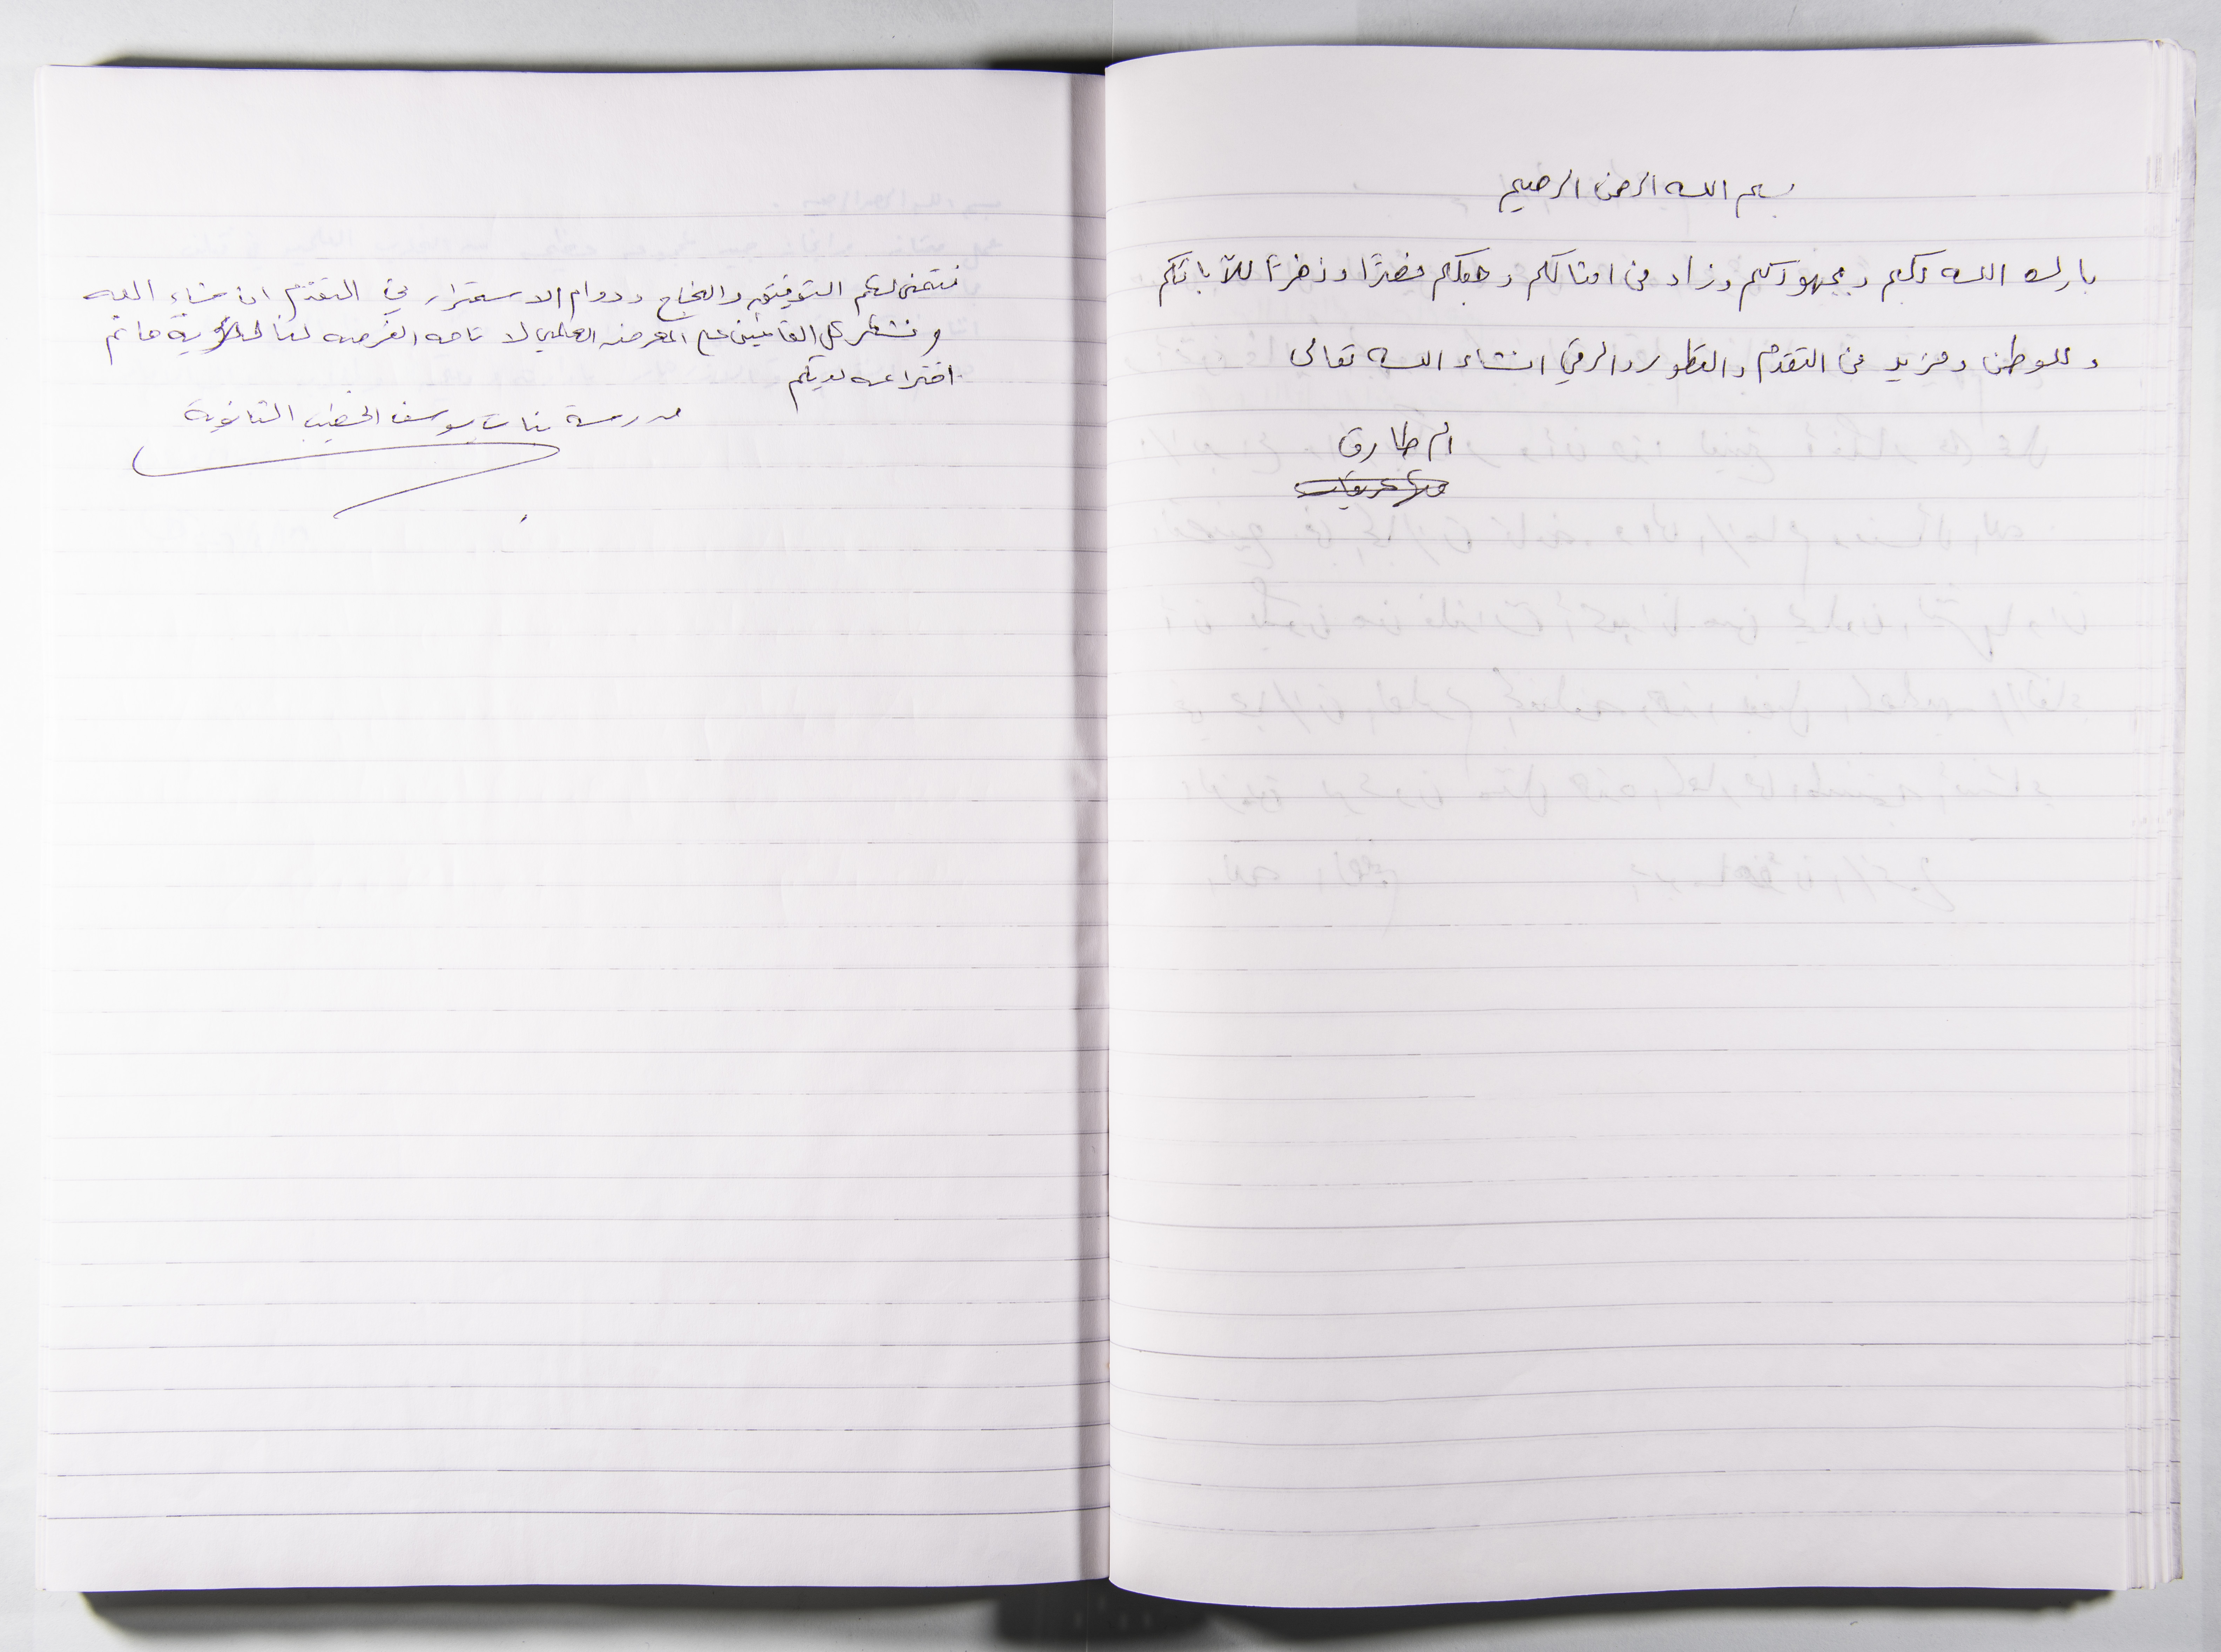 بسم الله الرحمن الرحيم
بارك الله بكم وبمجهودكم وزاد من امثالكم وجعلكم فخرًا وذخرًا لآبائكم
وللوطن ومزيد من التقدم والتطور والرقي انشاء الله تعالى
ام طارق
نتمنى لكم التوفيق والنجاح ودوام الاستمرار في التقدم ان شاء الله
ونشكر كل القائمين على المعرض العلمي لاتاحه الفرصه لنا لرؤية ما تم
اختراعه لديكم
مدرسة بنات يوسف الخطيب الثانوية